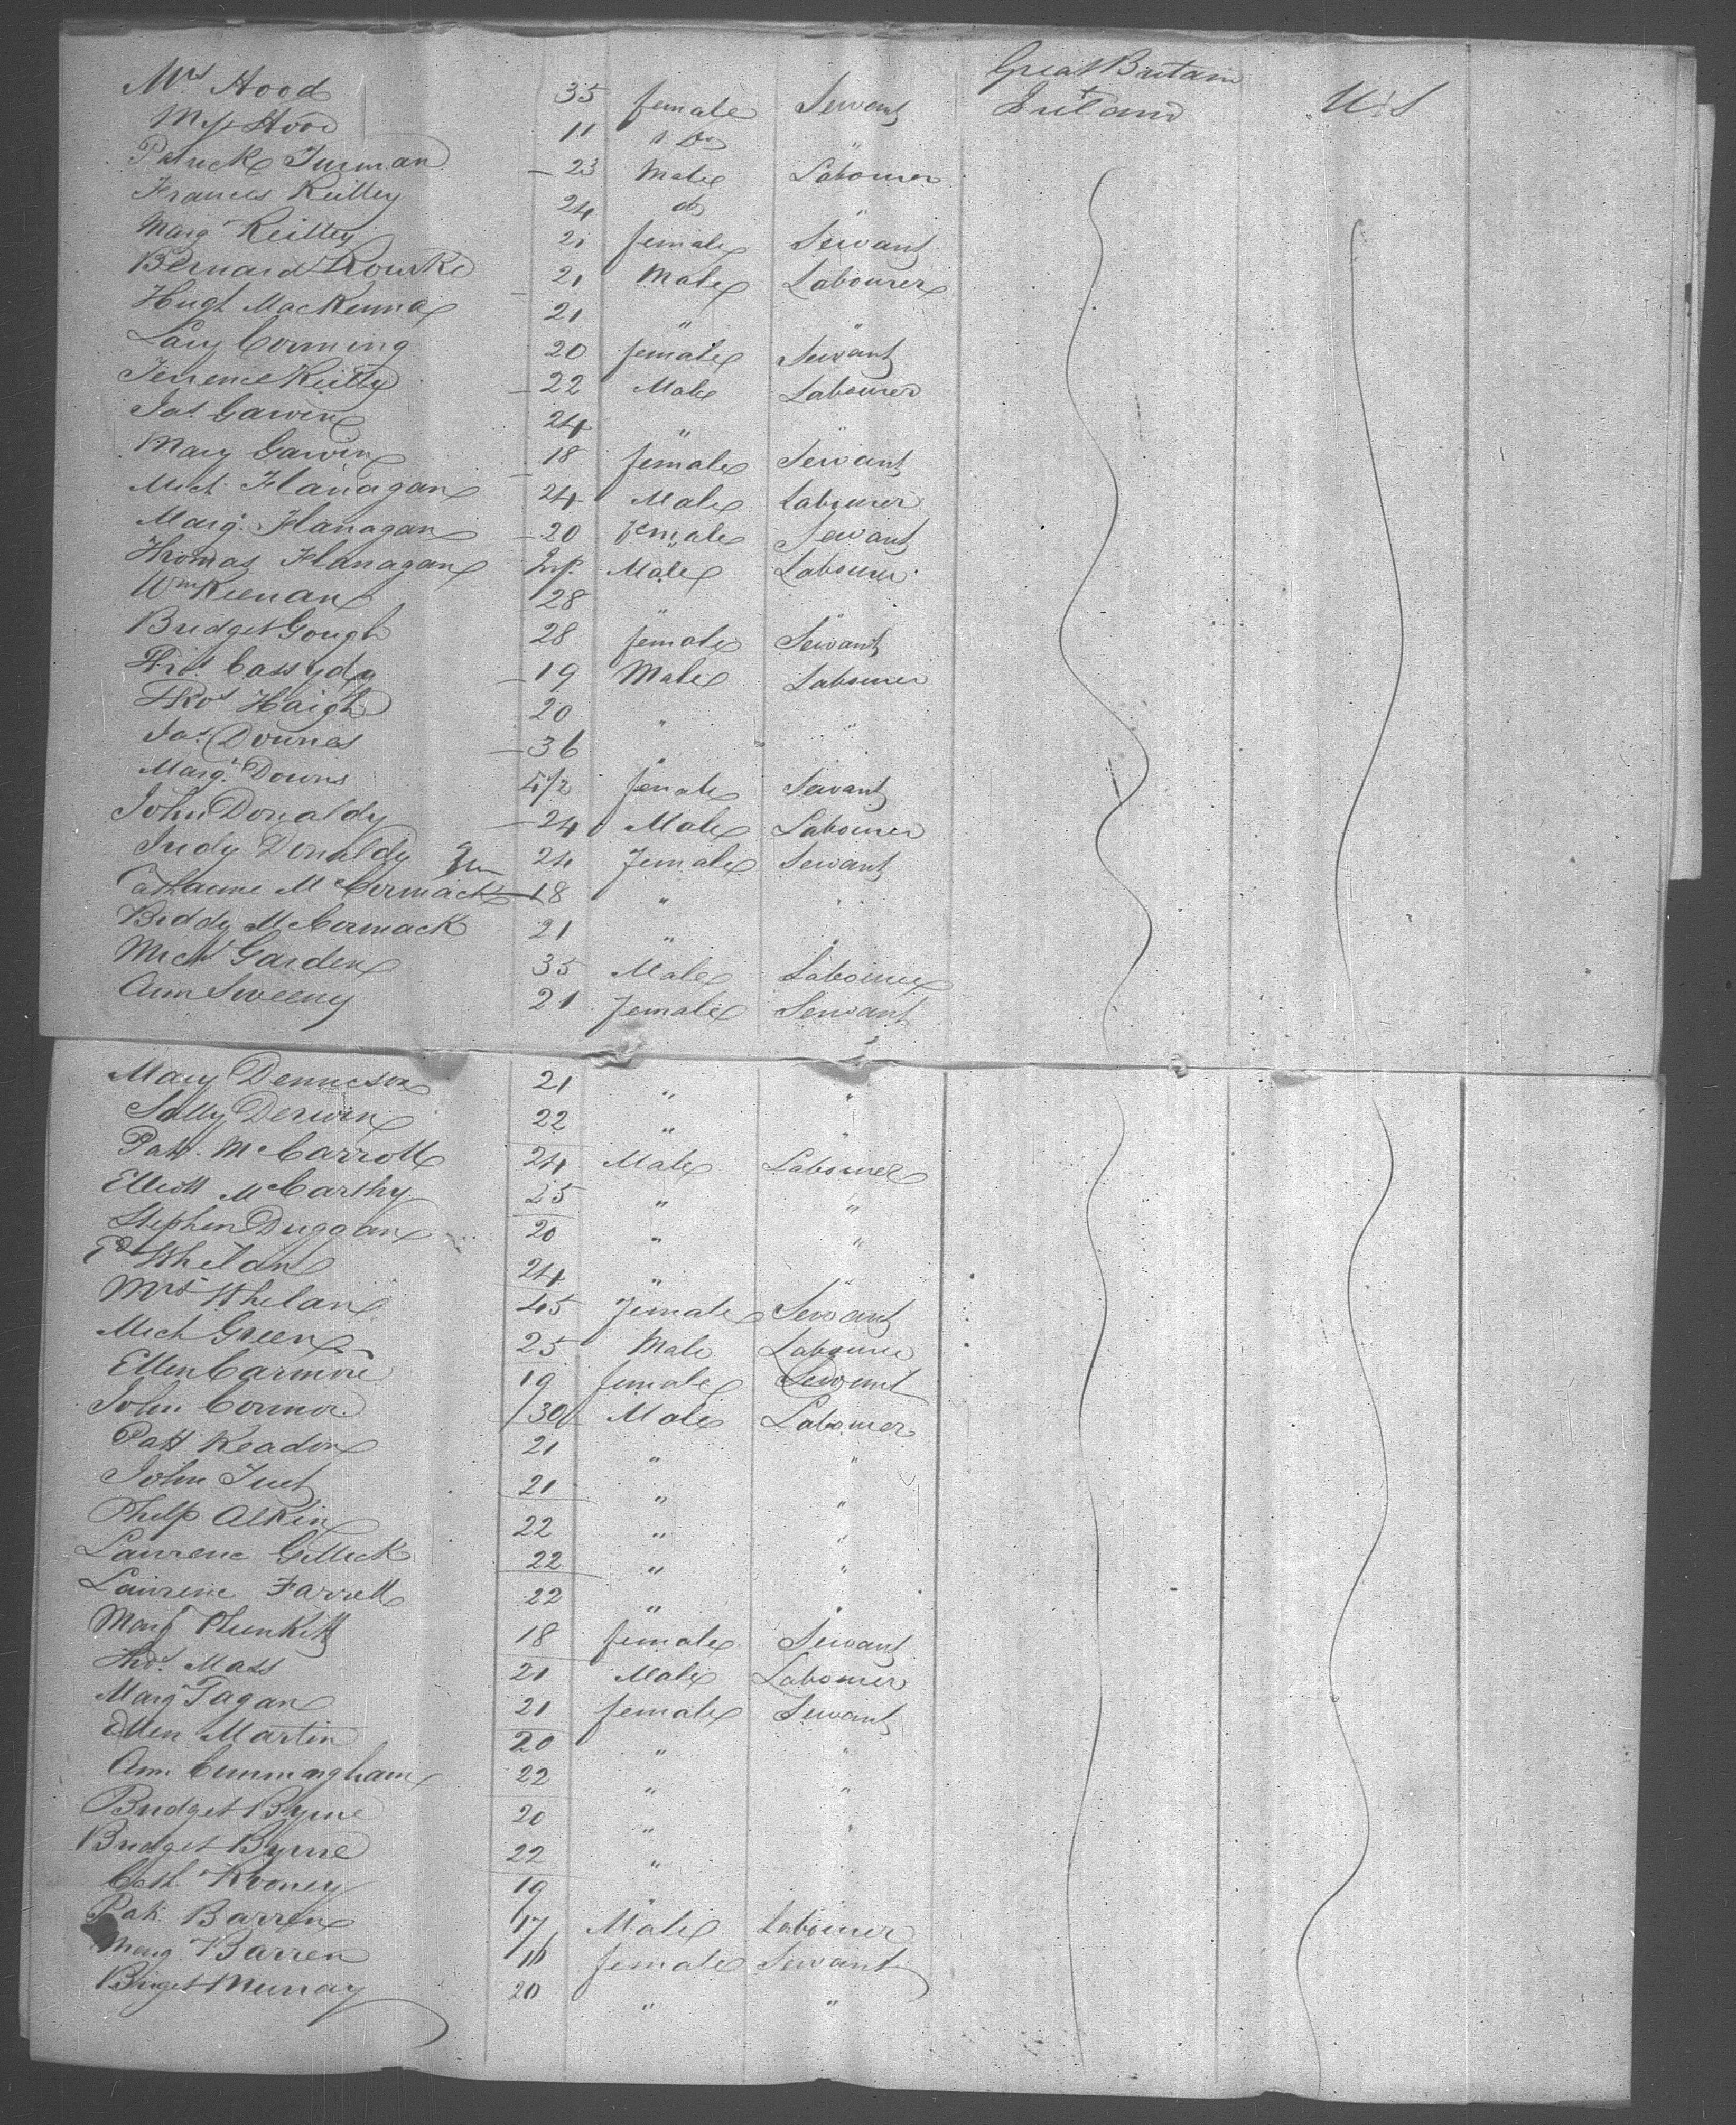 Great Britain
Mrs Hood 35 female Servant Ireland U.S
Hood 11 " Do "
Patrick 23 Male Labourer
Frances Reilley 24 do "
Marg Reilley 21 female Servant
Bernard Rourke 21 Male Labourer
Hugh MacKenna 21 " "
Lacy Corming 20 female Servant
Terrence Reilly 22 Male Labourer
Jas. Gawin 24 " "
Mary Gawin 18 female Servant
Mich Flanagan 24 Male Labourer
Marg. Flanagan 20 female Servant
Thomas Flanagan Inf. Male Labourer
Wm Keenan 28 " "
Bridget Gough 28 female Servant
Thos. Cassydy 19 Male Labourer
Thos Haigh 20 " "
Jas. Downes 36 "
Marg. Downs female Servant
John Donaldy 24 Male Labourer
Judy Donaldy 24 female Servant
Catharine McCormack 18 " "
Biddy McCormack 21 " "
Michl Garden 35 Male Labourer
Ann Sweeny 21 female Servant
Mary Dennison 21 " "
Sally Derwin 22 " "
Patt. McCarroll 24 Male Labourer
Elliott McCarthy 25 " "
Stephen Duggan 20 " "
Ed Whelan 24 " "
Mrs Whelan 45 female Servant
Mich Green 25 Male Labourer
Ellen Carmine 19 female Servant
John Connor 30 Male Labourer
Patt Readon 21 " "
John 21 " "
Philp Alkin 22 " "
Laurenc Gilleck 22 " "
Laurenc Farrell 22 " "
Marg Plunkett 18 female Servant
Thos. Mass 21 Male Labourer
Marg Fagan 21 female Servant
Ellen Martin 20 " "
Ann Cunningham 22 " "
Bridget Byrne 20 " "
Bridget Byrne 22 " "
Cath. Rooney 19 " "
Patk. Barren 17 Male Labourer
Marg Barren 16 female Servant
Briget Murray 20 " "